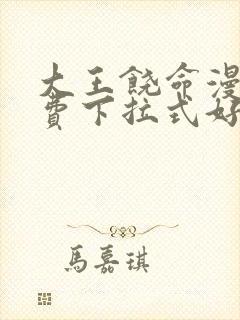 大王饶命漫
费下拉式好
馬嘉琪